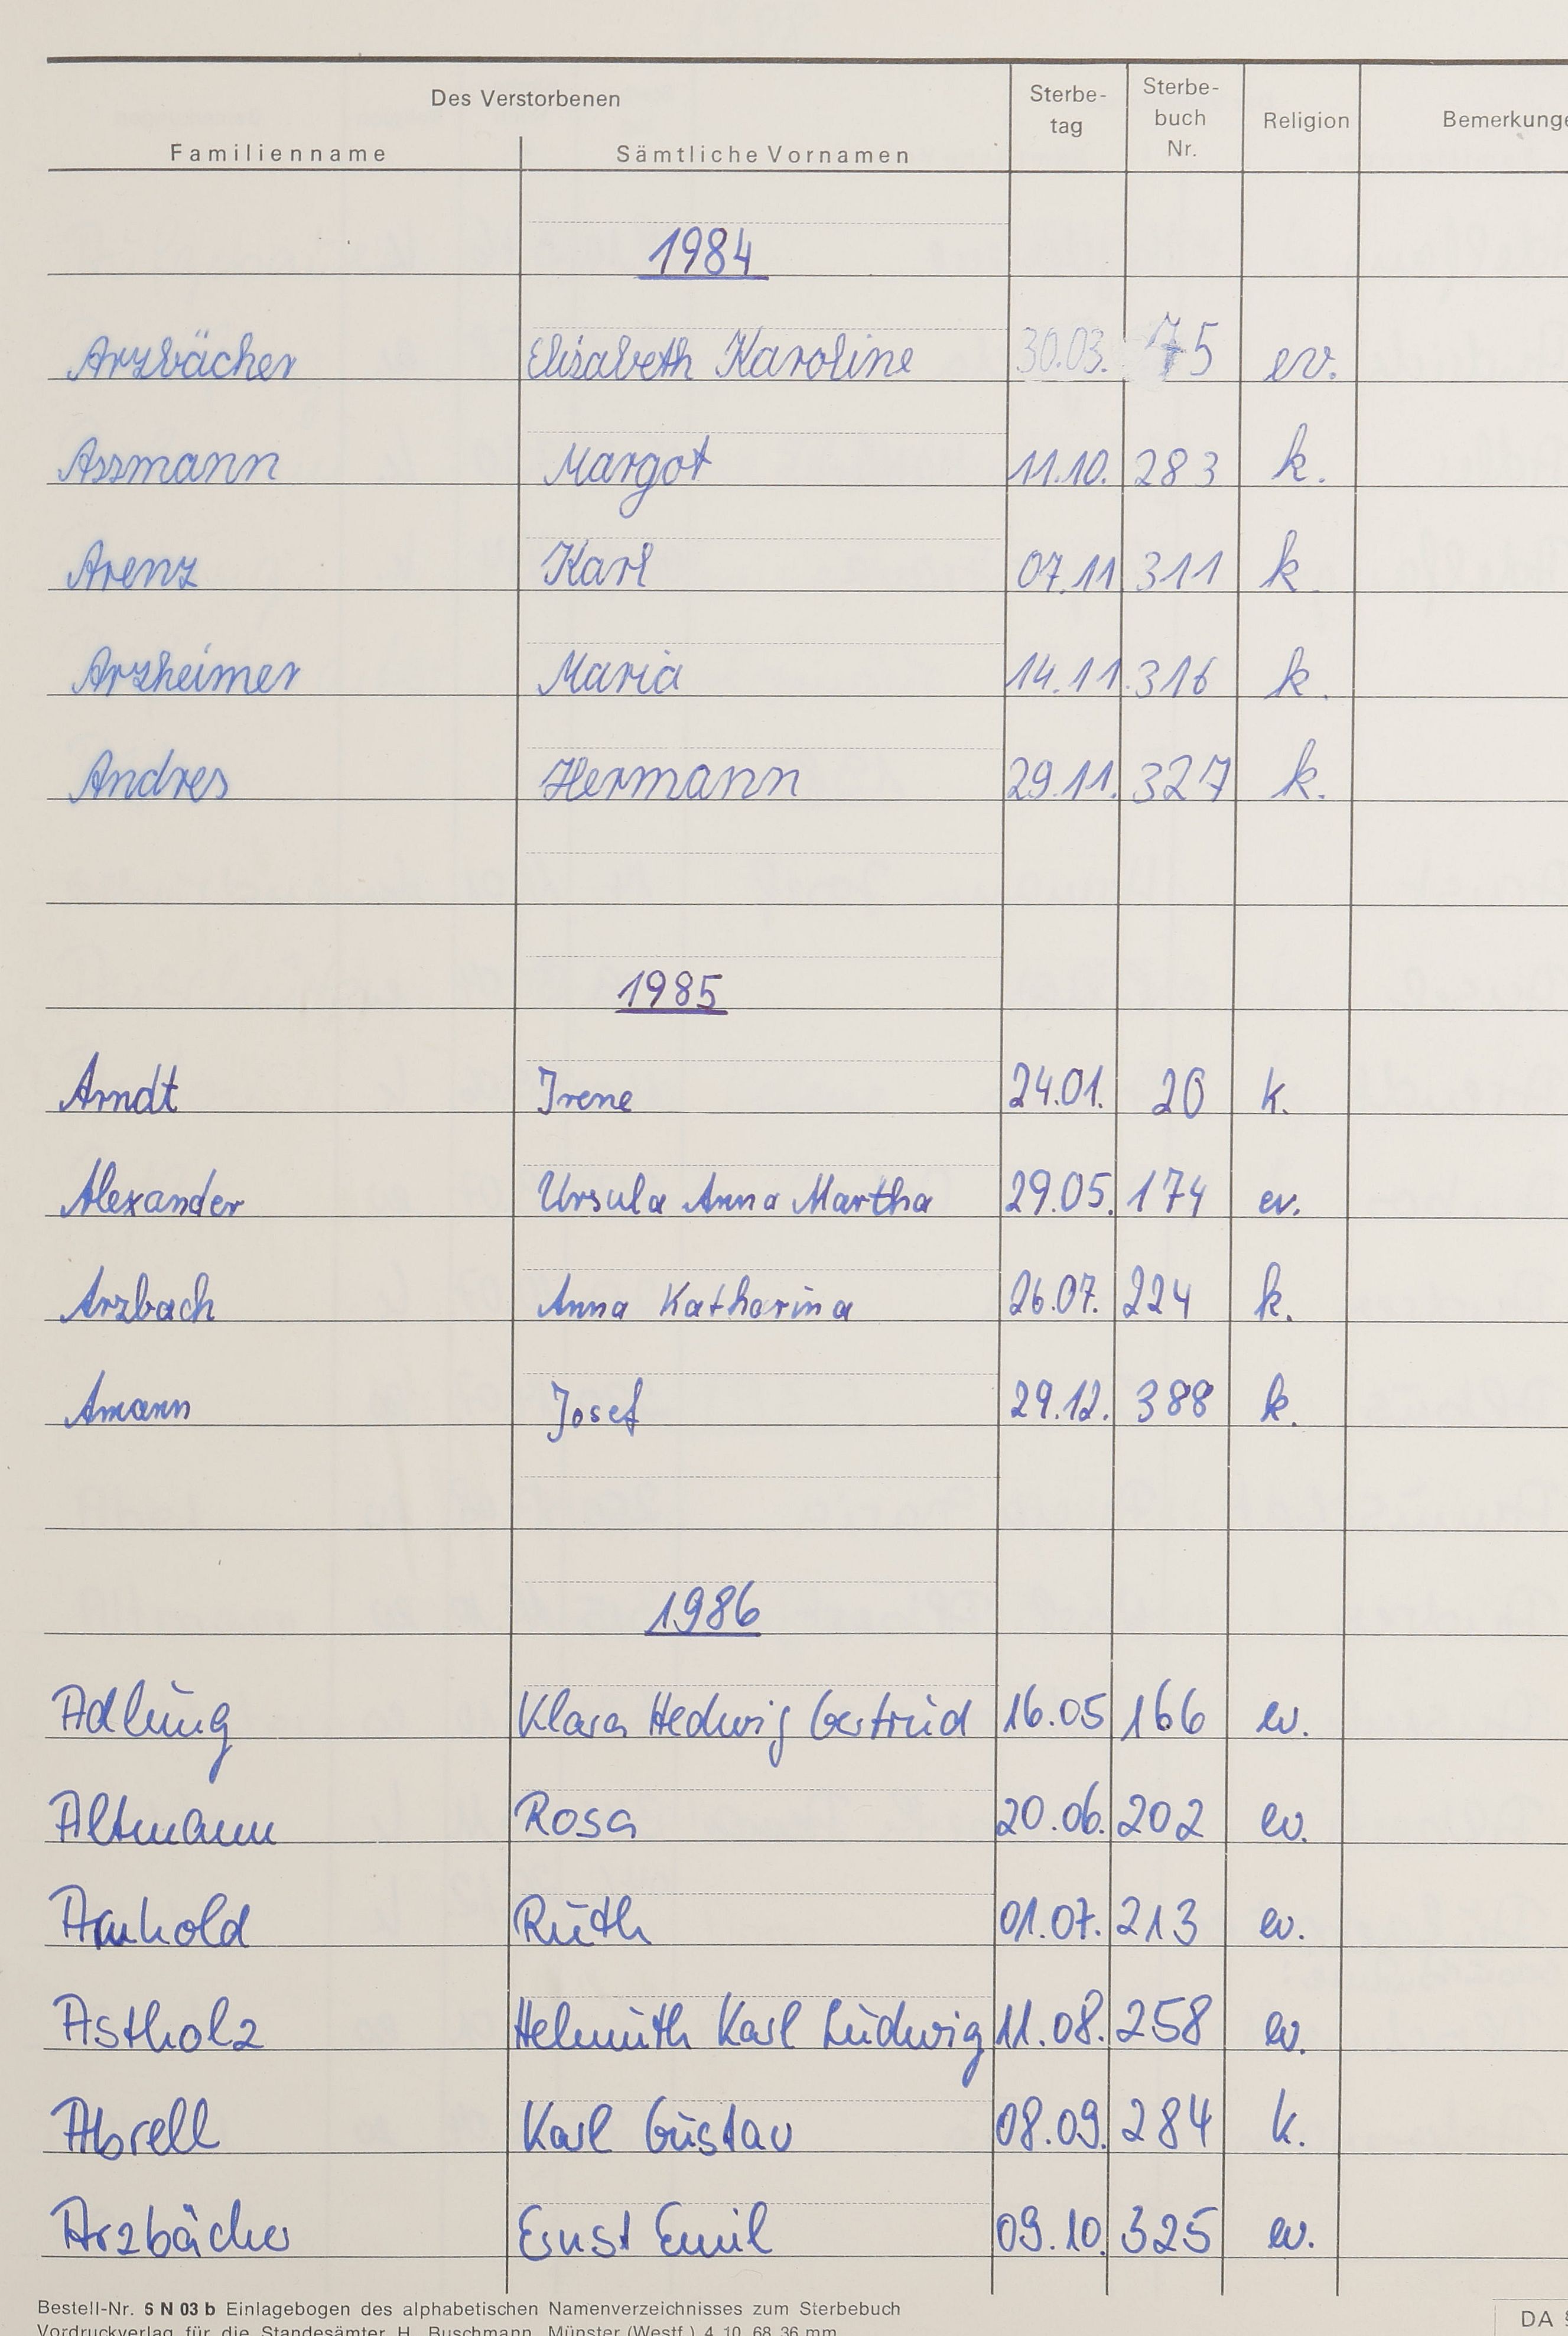 Des Verstorbenen
Familienname Sämtliche Vornamen Sterbe-tag Sterbe-buch Nr. Religion Bemerkunge
1984
Arzbächer Elisabeth Karoline 30.03. 75 ev.
Assmann Margot 11.10. 283 k.
Arenz Karl 07.11 311 k.
Arzheimer Maria 14.11. 316 k.
Andres Hermann 29.11. 327 k.
1985
Arndt Irene 24.01. 20 k.
Alexander Ursula Anna Martha 29.05. 174 ev.
Arzbach Anna Katharina 26.07. 224 k.
Amann Josef 29.12. 388 k.
1986
Adlung Klara Hedwig Gertrud 16.05 166 ev.
Altmann Rosa 20.06. 202 ev.
Ruth 01.07. 213 ev.
Astholz Helmuth Karl Ludwig 11.08. 258 ev.
Abrell Karl Gustav 08.09. 284 k.
Arzbächer Ernst Emil 09.10. 325 ev.
Bestell-Nr. 5 N 03 b Einlagebogen des alphabetischen Namenverzeichnisses zum Sterbebuch
Vordruckverlag für die Standesämter H. Buschmann, Münster (Westf.) 4 10 68 36 mm
DA